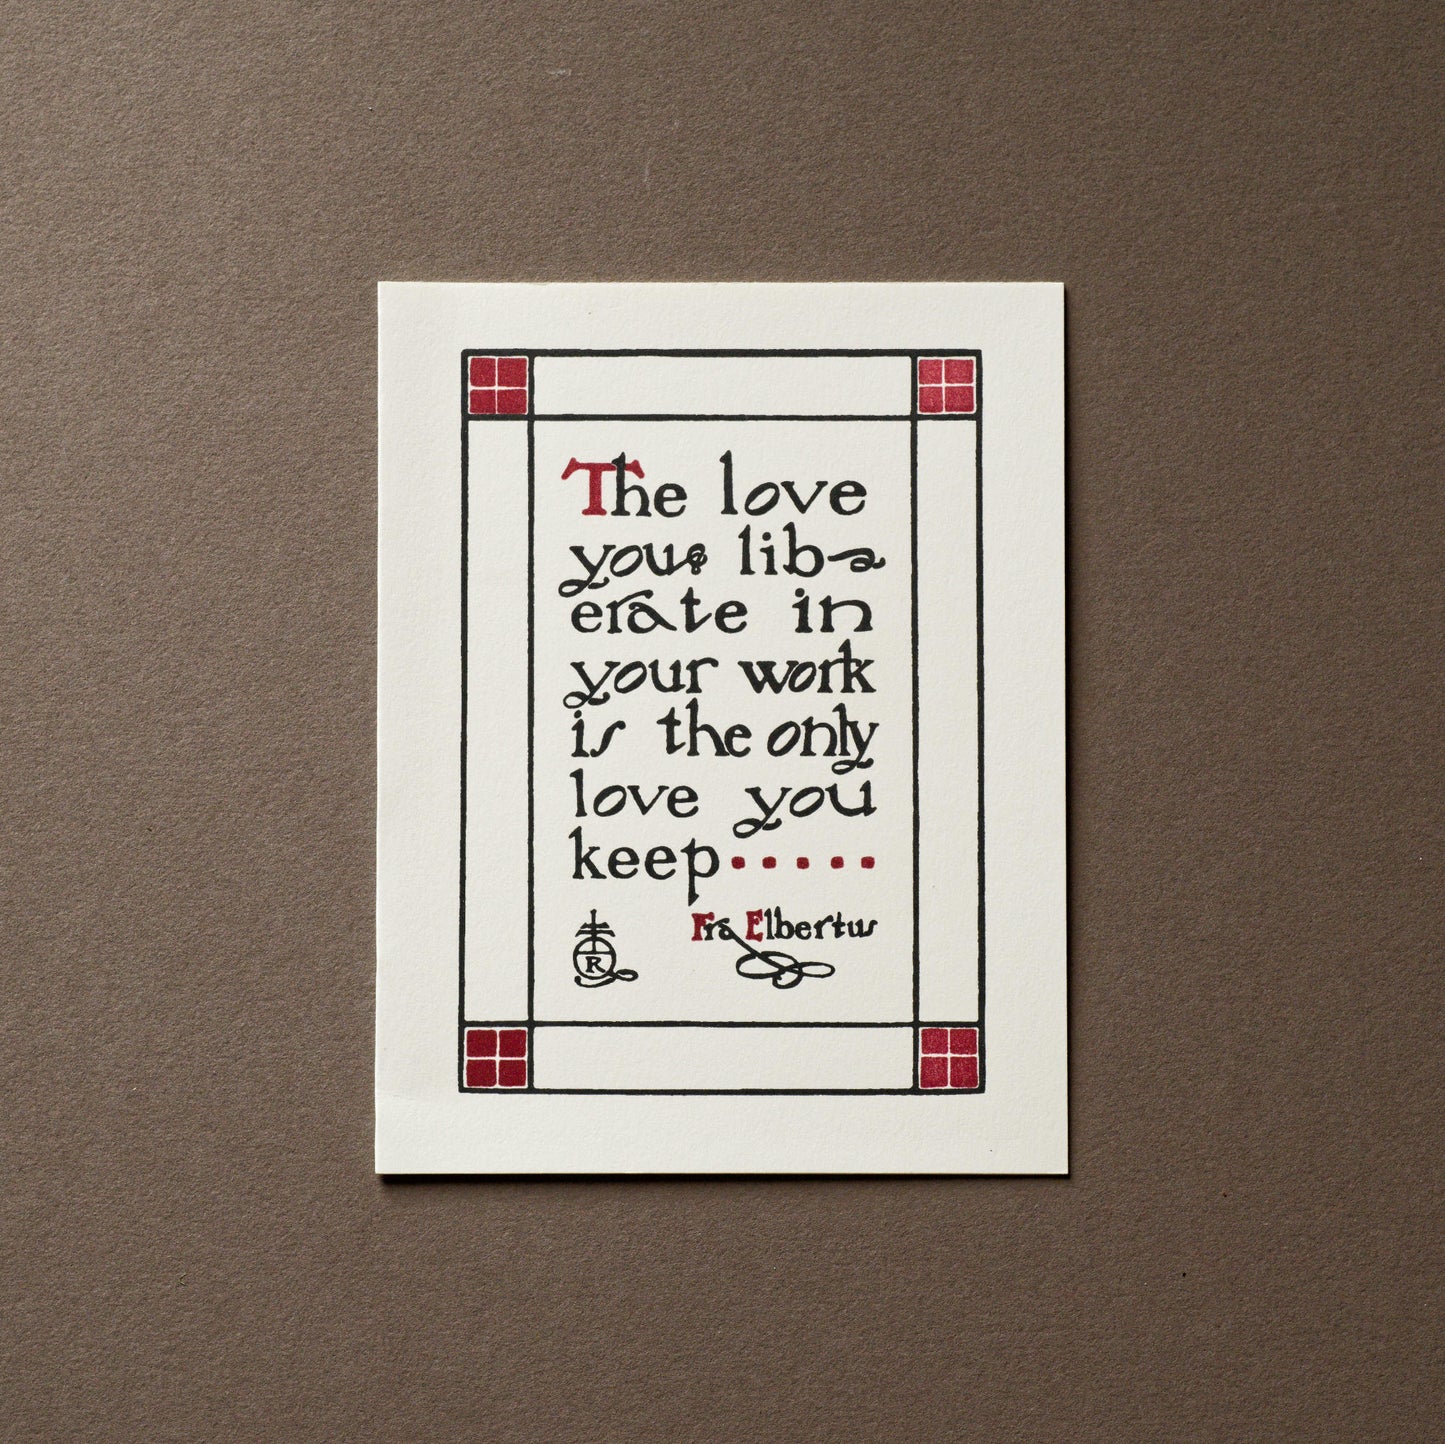 The love
you lib-
erate in
your work
is the only
love you
keep.....
Fra Elbertus
R